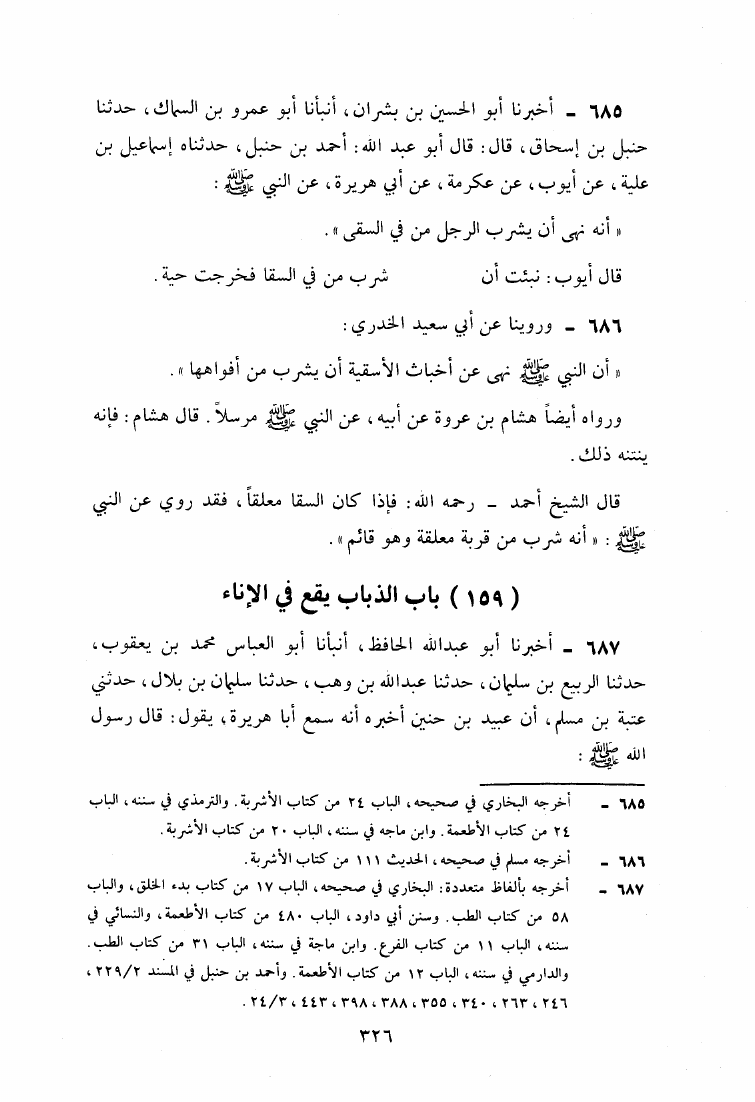 ٦٨٥ - أخبرنا أبو الحسين بن بشران، أنبأنا أبو عمرو بن السماك، حدثنا
حنبل بن إسحاق، قال: قال أبو عبد الله: أحمد بن حنبل، حدثناه إسماعيل بن
علية، عن أيوب، عن عكرمة، عن أبي هريرة، عن النبي ﷺ :
« أنه نهى أن يشرب الرجل من في السقى ».
قال أيوب: نبئت أن شرب من في السقا فخرجت حية.
٦٨٦ - وروينا عن أبي سعيد الخدري:
« أن النبي ﷺ نهى عن أخباث الأسقية أن يشرب من أفواهها ».
ورواه أيضاً هشام بن عروة عن أبيه، عن النبي ﷺ مرسلاً. قال هشام: فإنه
ينتنه ذلك.
قال الشيخ أحمد - رحمه الله: فإذا كان السقا معلقاً، فقد روي عن النبي
ﷺ : « أنه شرب من قربة معلقة وهو قائم ».
( ١٥٩ ) باب الذباب يقع في الإناء
٦٨٧ - أخبرنا أبو عبدالله الحافظ، أنبأنا أبو العباس محمد بن يعقوب،
حدثنا الربيع بن سليمان، حدثنا عبدالله بن وهب، حدثنا سليمان بن بلال، حدثني
عتبة بن مسلم، أن عبيد بن حنين أخبره أنه سمع أبا هريرة، يقول: قال رسول
الله ﷺ :
٦٨٥ - أخرجه البخاري في صحيحه، الباب ٢٤ من كتاب الأشربة. والترمذي في سننه، الباب
٢٤ من كتاب الأطعمة. وابن ماجه في سننه، الباب ٢٠ من كتاب الأشربة.
٦٨٦ - أخرجه مسلم في صحيحه، الحديث ١١١ من كتاب الأشربة.
٦٨٧ - أخرجه بألفاظ متعددة: البخاري في صحيحه، الباب ١٧ من كتاب بدء الخلق، والباب
٥٨ من كتاب الطب. وسنن أبي داود، الباب ٤٨٠ من كتاب الأطعمة، والنسائي في
سننه، الباب ١١ من كتاب الفرع. وابن ماجة في سننه، الباب ٣١ من كتاب الطب.
والدارمي في سننه، الباب ١٢ من كتاب الأطعمة. وأحمد بن حنبل في المسند ٢٢٩/٢،
٢٤٦، ٢٦٣، ٣٤٠، ٣٥٥، ٣٨٨، ٣٩٨، ٤٤٣، ٢٤/٣.
٣٢٦